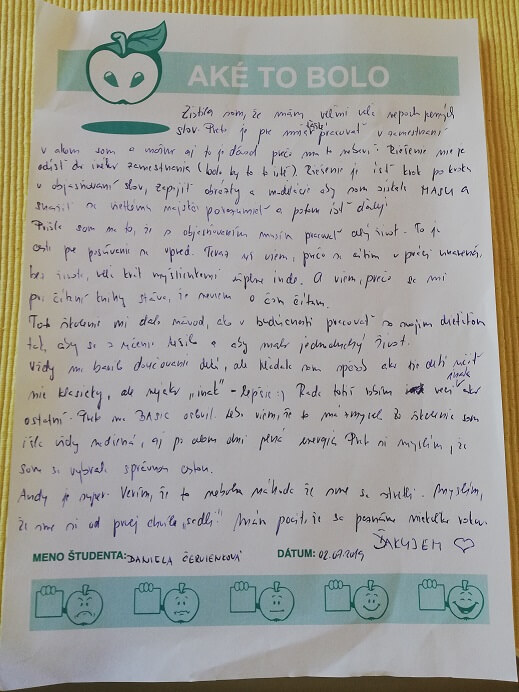 AKÉ TO BOLO
Zistila som, že mám veľmi veľa nepochopených
slov. Preto je pre mňa ťažké pracovať v zamestnaní
v akom som a možno aj to je dôvod prečo ma to nebaví. Riešenie nie je
odísť do iného zamestnania (bolo by to to isté). Riešenie je ísť krok po kroku
v objasňovaní slov, zapojiť obrázky a modelácie aby som získala MASU a
snažiť sa všetkému najskôr porozumieť a potom ísť ďalej
Prišla som na to, že s objasňovaním musím pracovať celý život. To je
cesta pre posúvanie sa vpred. Teraz už viem, prečo sa cítim v práci unavená,
bez života, veľa krát myšlienkami úplne inde. A viem, prečo sa mi
pri čítaní knihy stáva, že neviem o čom čítam.
Toto školenie mi dalo návod, ako v budúcnosti pracovať s mojim dieťaťom
tak, aby sa s učením tešilo a aby malo jednoduchý život.
Vždy ma bavilo doučovanie detí, ale hľadala som spôsob ako tie deti učiť
nie klasicky, ale nejako "inak" - lepšie :) Rada totiž robím veci inak ako
ostatní. Preto ma BASIC oslovil. Lebo viem, že to má zmysel. Zo školenia som
išla vždy nadšená, aj po celom dni plná energie. Preto si myslím, že
som si vybrala správnou cestou.
Andy je super. Verím, že to nebola náhoda že sme sa stretli. Myslím,
že sme si od prvej chvíle "sedli". Mám pocit, že sa poznáme niekoľko rokov.
ĎAKUJEM
MENO ŠTUDENTA: DANIELA ČERVIENKOVÁ DÁTUM: 02.07.2019